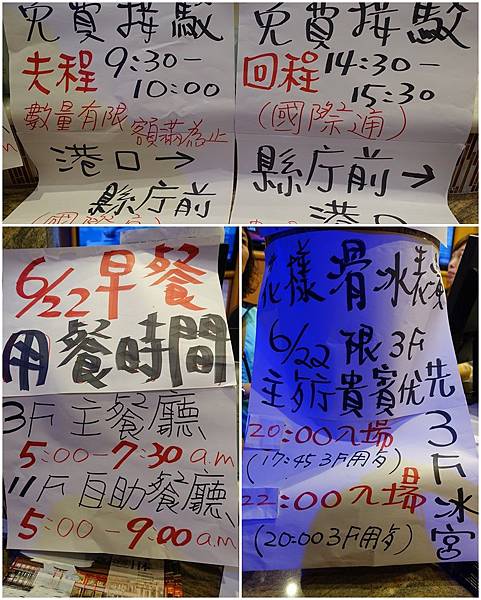 免費接駁
去程 9:30-
10:00
數量有限 額滿為止
港口→
縣庁前
免費接駁
回程 14:30-
15:30
(國際通)
縣庁前→
港口
6/22早餐
用餐時間
3F 主餐廳
5:00-7:30 a.m
11F 自助餐廳
5:00-9:00 a.m
花樣滑冰表演
6/22 限3F
主餐厅貴賓优先
20:00入場
(17:45 3F用餐)
22:00入場
(20:00 3F用餐)
3F冰宮